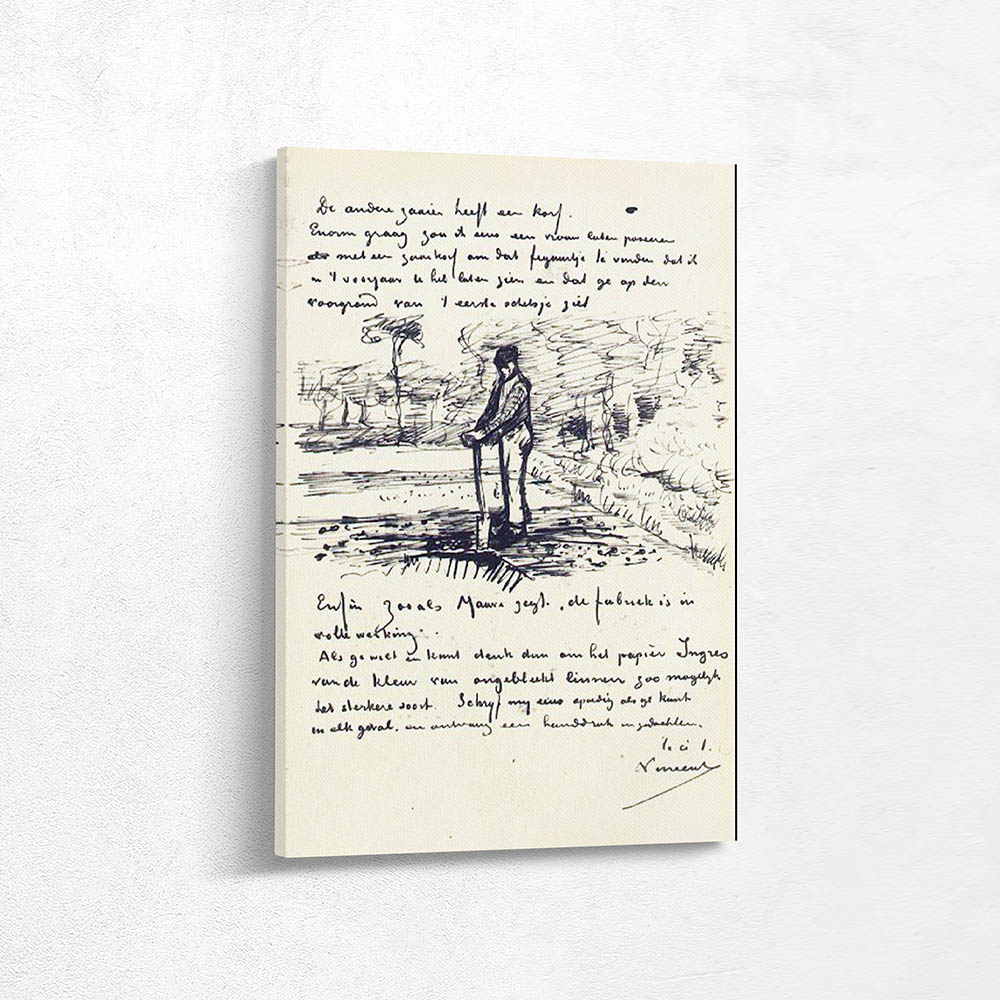 De andere zaaier heeft een korf.
Enorm graag zou ik eens een vrouw laten poseeren
met een zaaikorf om dat figuurtje te vinden dat ik
u 't voorjaar heb laten zien en dat ge op den
voorgrond van 't eerste schetsje ziet
Enfin zooals Mauve zegt, de fabriek is in
volle werking.
Als ge wilt en kunt denk dan om het papier Ingres
van de kleur van ongebleekt linnen zoo mogelijk
het sterkere soort. Schryf my eens spoedig als ge kunt
in elk geval, en ontvang een handdruk in gedachten.
Vincent